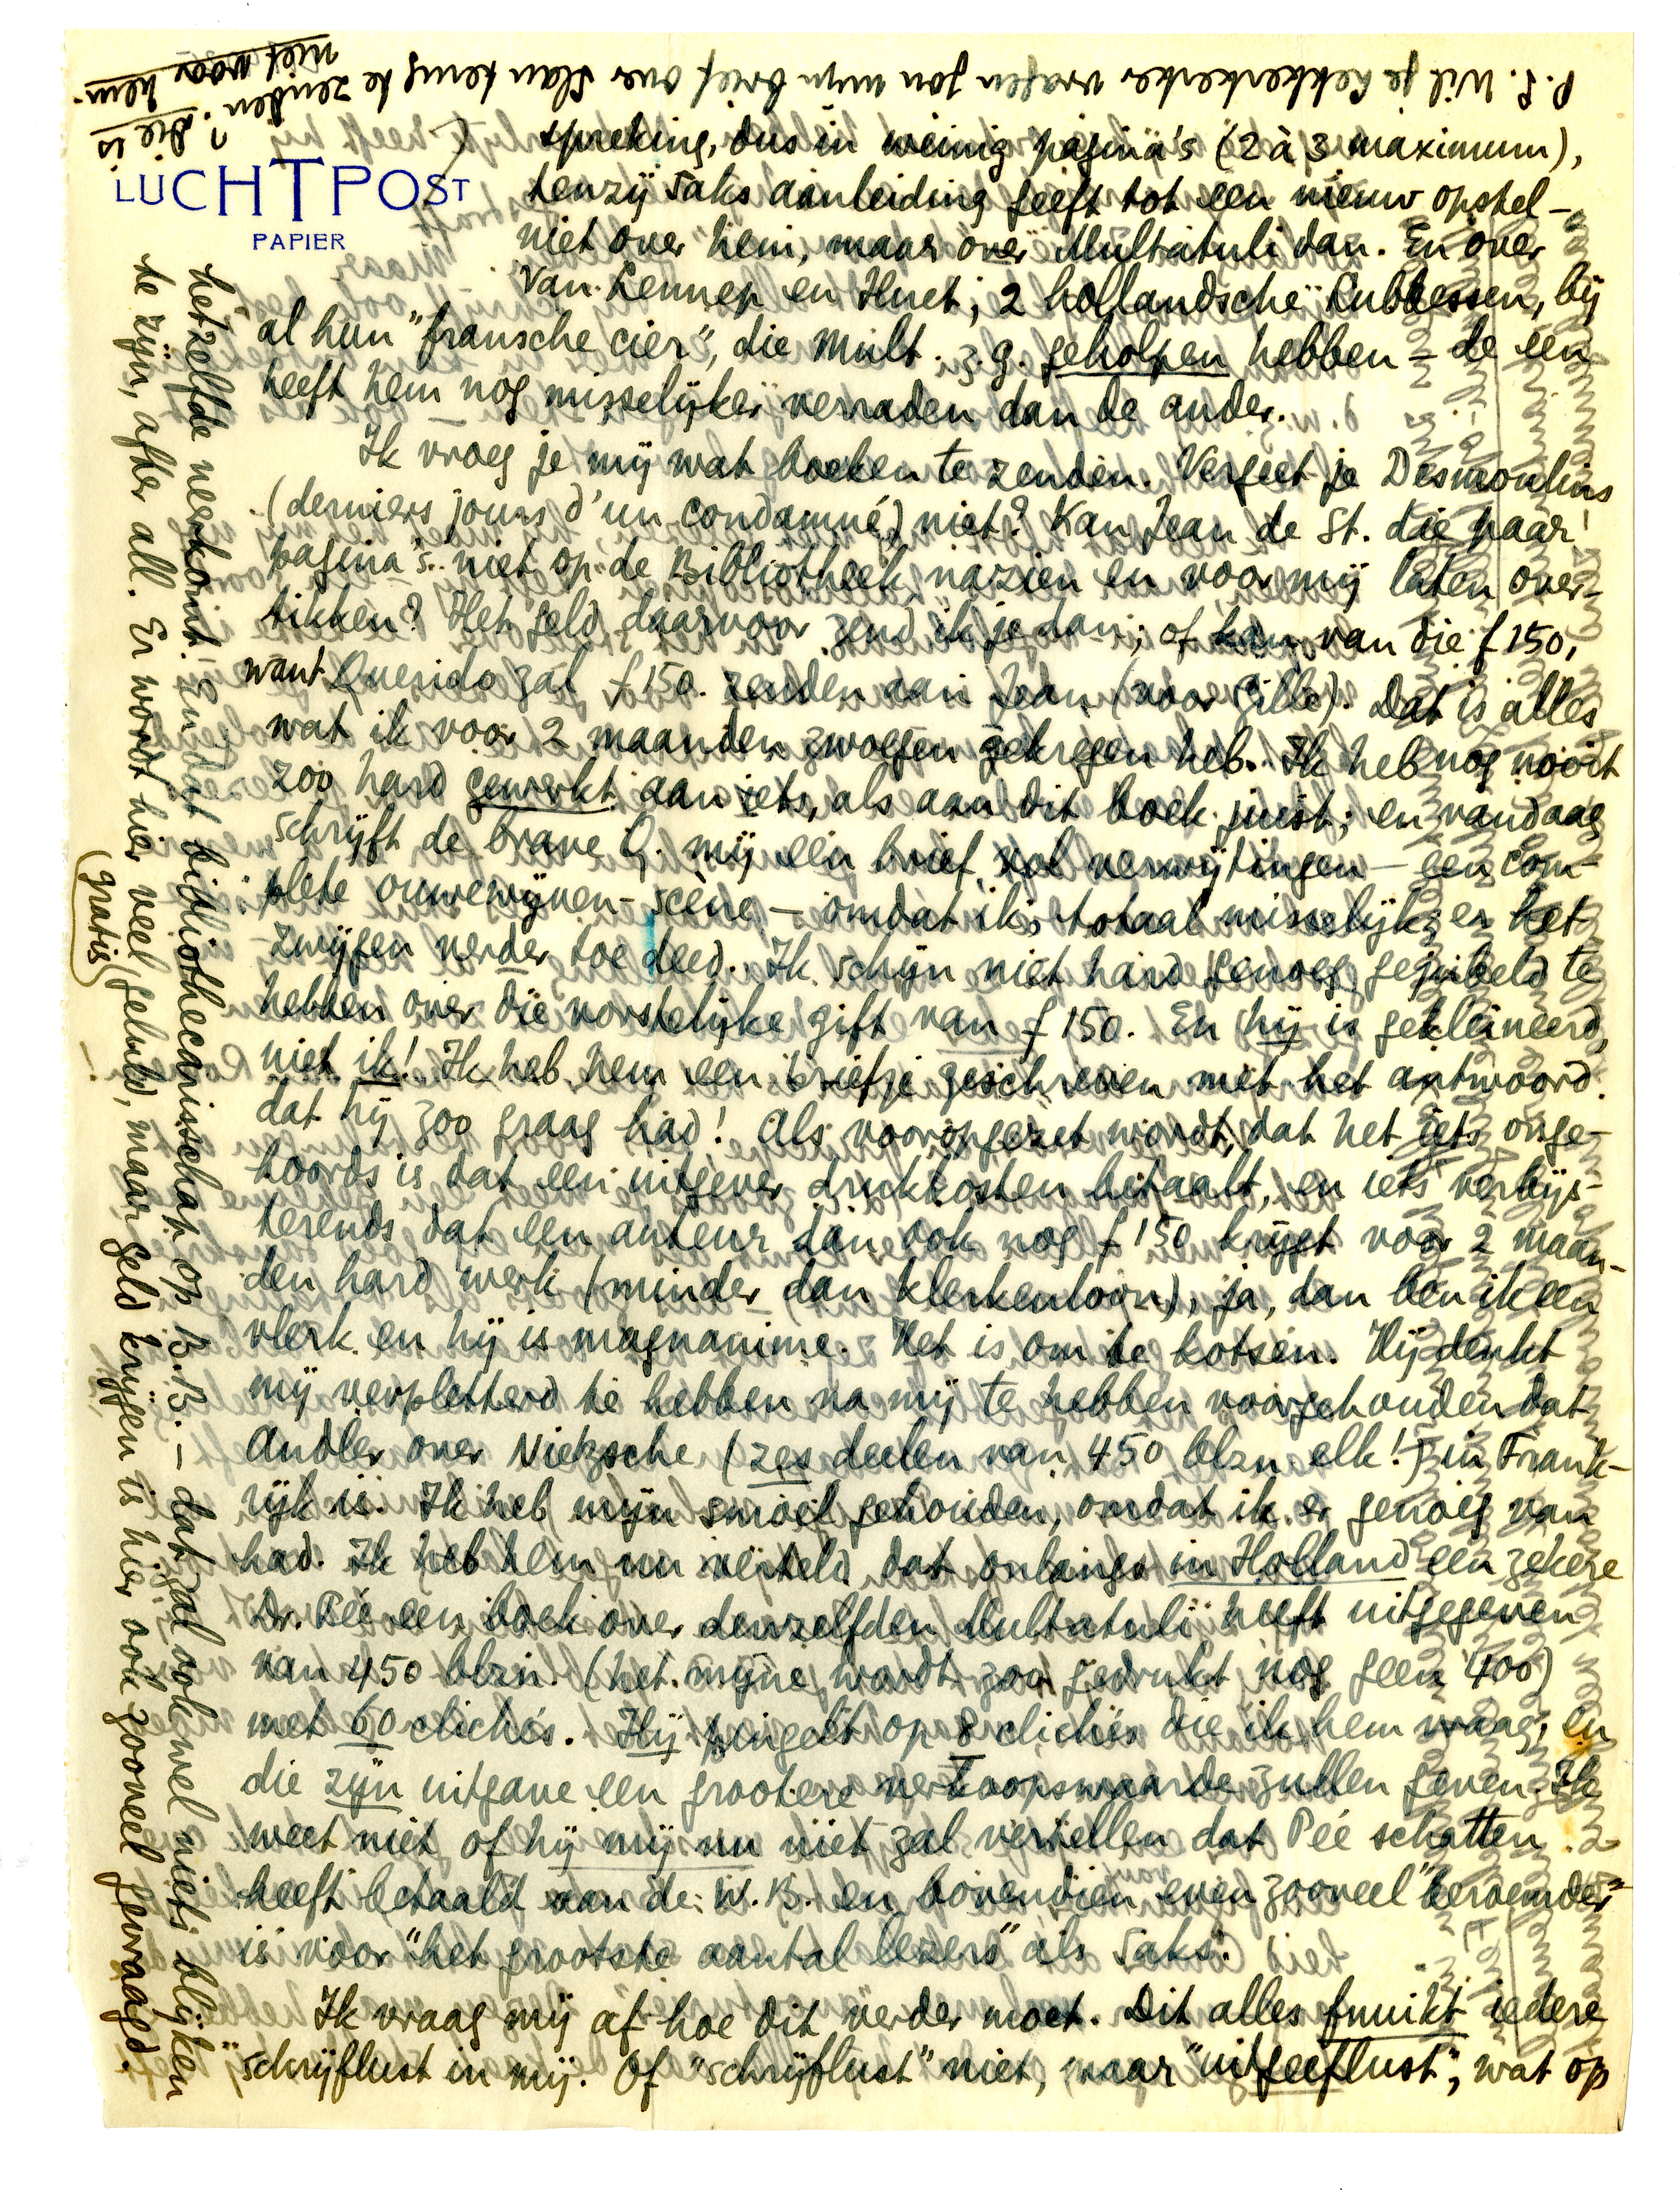 P.S. Wil je Gekkerkerker vragen jou mijn brief over Slau terug te zenden? Die is
niet voor hem.
LUCHTPOST
PAPIER
spreking, dus in weinig pagina's (2 à 3 maximum),
tenzij Saks aanleiding geeft tot een nieuw opstel –
niet over hem, maar over Multatuli dan. En over
Van Lennep en Huet; 2 hollandsche lubbessen, bij
al hun "fransche cier", die Mult. z.g. geholpen hebben – de een
heeft hem nog misselijker verraden dan de ander.
Ik vroeg je mij wat boeken te zenden. Vergeet je Desmoulins
(derniers jours d'un condamné) niet? Kan Jean de St. die paar
pagina's niet op de Bibliotheek nazien en voor mij laten over-
tikken? Het geld daarvoor zend ik je dan; of kan van die f 150,
want Querido zal f 150. zenden aan Jean (voor Gille). Dat is alles
wat ik voor 2 maanden zwoegen gekregen heb. Ik heb nog nooit
zoo hard gewerkt aan iets, als aan dit boek juist; en vandaag
schrijft de brave Q. mij een brief vol verwijtingen – een com-
plete ouwewijven-scène – omdat ik, totaal misselijk, er het
zwijgen verder toe deed. Ik schijn niet hard genoeg gejubeld te
hebben over die vorstelijke gift van f 150. En hij is gekleineerd,
niet ik! Ik heb hem een briefje geschreven met het antwoord
dat hij zoo graag had! Als vooropgezet wordt, dat het iets onge-
hoords is dat een uitgever drukkosten betaalt, en iets verbijs-
terends dat een auteur dan ook nog f 150 krijgt voor 2 maan-
den hard werk (minder dan klerkenloon), ja, dan ben ik een
vlerk en hij is magnanime. Het is om te kotsen. Hij denkt
mij verpletterd te hebben na mij te hebben voorgehouden dat
Andler over Nietzsche (zes deelen van 450 blzn elk!) in Frank-
rijk is. Ik heb mijn smoel gehouden, omdat ik er genoeg van
had. Ik heb hem nu verteld dat onlangs in Holland een zekere
Dr. Pée een boek over denzelfden Multatuli heeft uitgegeven
van 450 blzn. (het mijne wordt zoo gedrukt nog geen 400)
met 60 cliché's. Hij pingelt op 8 cliché's die ik hem vraag, en
die zijn uitgave een grootere verkoopswaarde zullen geven. Ik
weet niet of hij mij nu niet zal vertellen dat Pée schatten
heeft betaald aan de W.B. en bovendien even zooveel "beroemder"
is voor "het grootste aantal lezers" als Saks.
Ik vraag mij af hoe dit verder moet. Dit alles fnuikt iedere
schrijflust in mij. Of "schrijflust" niet, maar "uitgeeflust", wat op
hetzelfde neerkomt. En dat bibliothecarisschap op B.B. – dat zal ook wel niets blijken
te zijn, after all. Er wordt hier veel (gratis) geluld, maar geld krijgen is hier ook zooveel gevraagd.